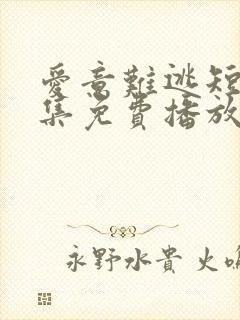 愛意難逃短
集免費播放
永野水貴 火鳴